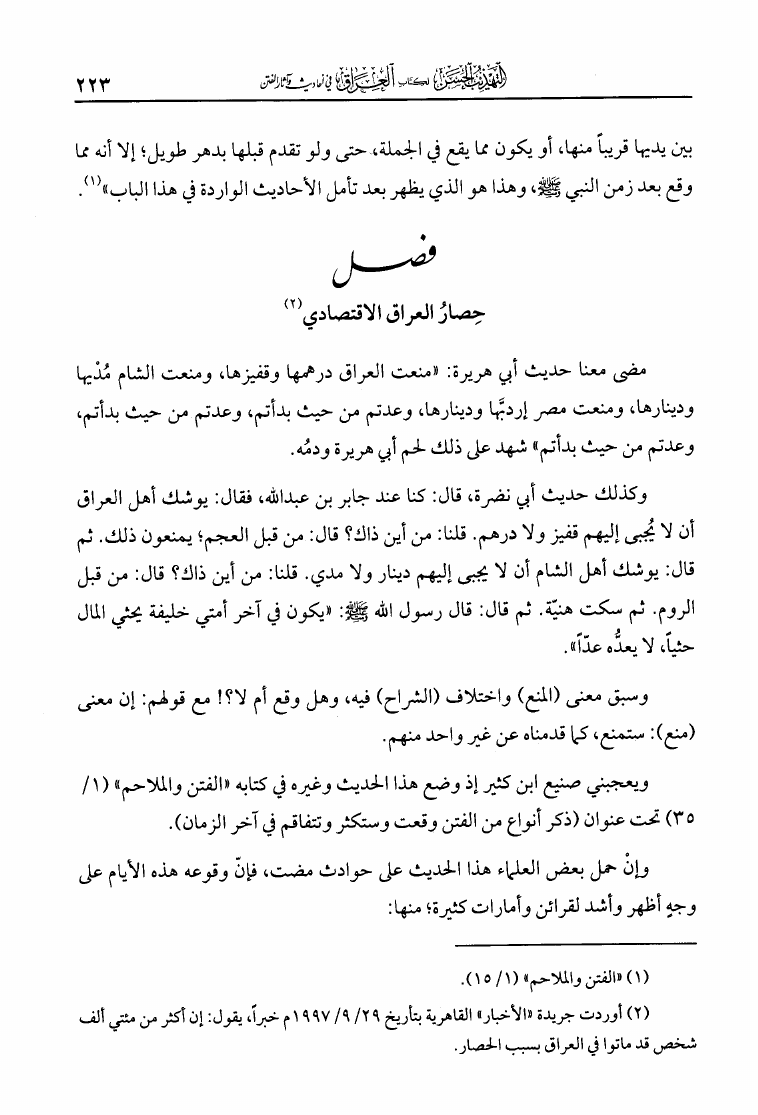 التهذيب الحسن لكتاب العراق في أحاديث وآثار الفتن ٢٢٣
بين يديها قريباً منها، أو يكون مما يقع في الجملة، حتى ولو تقدم قبلها بدهر طويل؛ إلا أنه مما
وقع بعد زمن النبي ﷺ، وهذا هو الذي يظهر بعد تأمل الأحاديث الواردة في هذا الباب»(١).
فصل
حِصارُ العراق الاقتصادي(٢)
مضى معنا حديث أبي هريرة: «منعت العراق درهمها وقفيزها، ومنعت الشام مُدْيها
ودينارها، ومنعت مصر إردبَّها ودينارها، وعدتم من حيث بدأتم، وعدتم من حيث بدأتم،
وعدتم من حيث بدأتم» شهد على ذلك لحم أبي هريرة ودمُه.
وكذلك حديث أبي نضرة، قال: كنا عند جابر بن عبدالله، فقال: يوشك أهل العراق
أن لا يُجبى إليهم قفيز ولا درهم. قلنا: من أين ذاك؟ قال: من قبل العجم؛ يمنعون ذلك. ثم
قال: يوشك أهل الشام أن لا يجبى إليهم دينار ولا مدي. قلنا: من أين ذاك؟ قال: من قبل
الروم. ثم سكت هنيّة. ثم قال: قال رسول الله ﷺ: «يكون في آخر أمتي خليفة يحثي المال
حثياً، لا يعدُّه عدّاً».
وسبق معنى (المنع) واختلاف (الشراح) فيه، وهل وقع أم لا؟! مع قولهم: إن معنى
(منع): ستمنع، كما قدمناه عن غير واحد منهم.
ويعجبني صنيع ابن كثير إذ وضع هذا الحديث وغيره في كتابه «الفتن والملاحم» (١/
٣٥) تحت عنوان (ذكر أنواع من الفتن وقعت وستكثر وتتفاقم في آخر الزمان).
وإنْ حمل بعض العلماء هذا الحديث على حوادث مضت، فإنّ وقوعه هذه الأيام على
وجهٍ أظهر وأشد لقرائن وأمارات كثيرة؛ منها:
(١) «الفتن والملاحم» (١/ ١٥).
(٢) أوردت جريدة «الأخبار» القاهرية بتأريخ ٢٩/ ٩/ ١٩٩٧م خبراً، يقول: إن أكثر من مئتي ألف
شخص قد ماتوا في العراق بسبب الحصار.